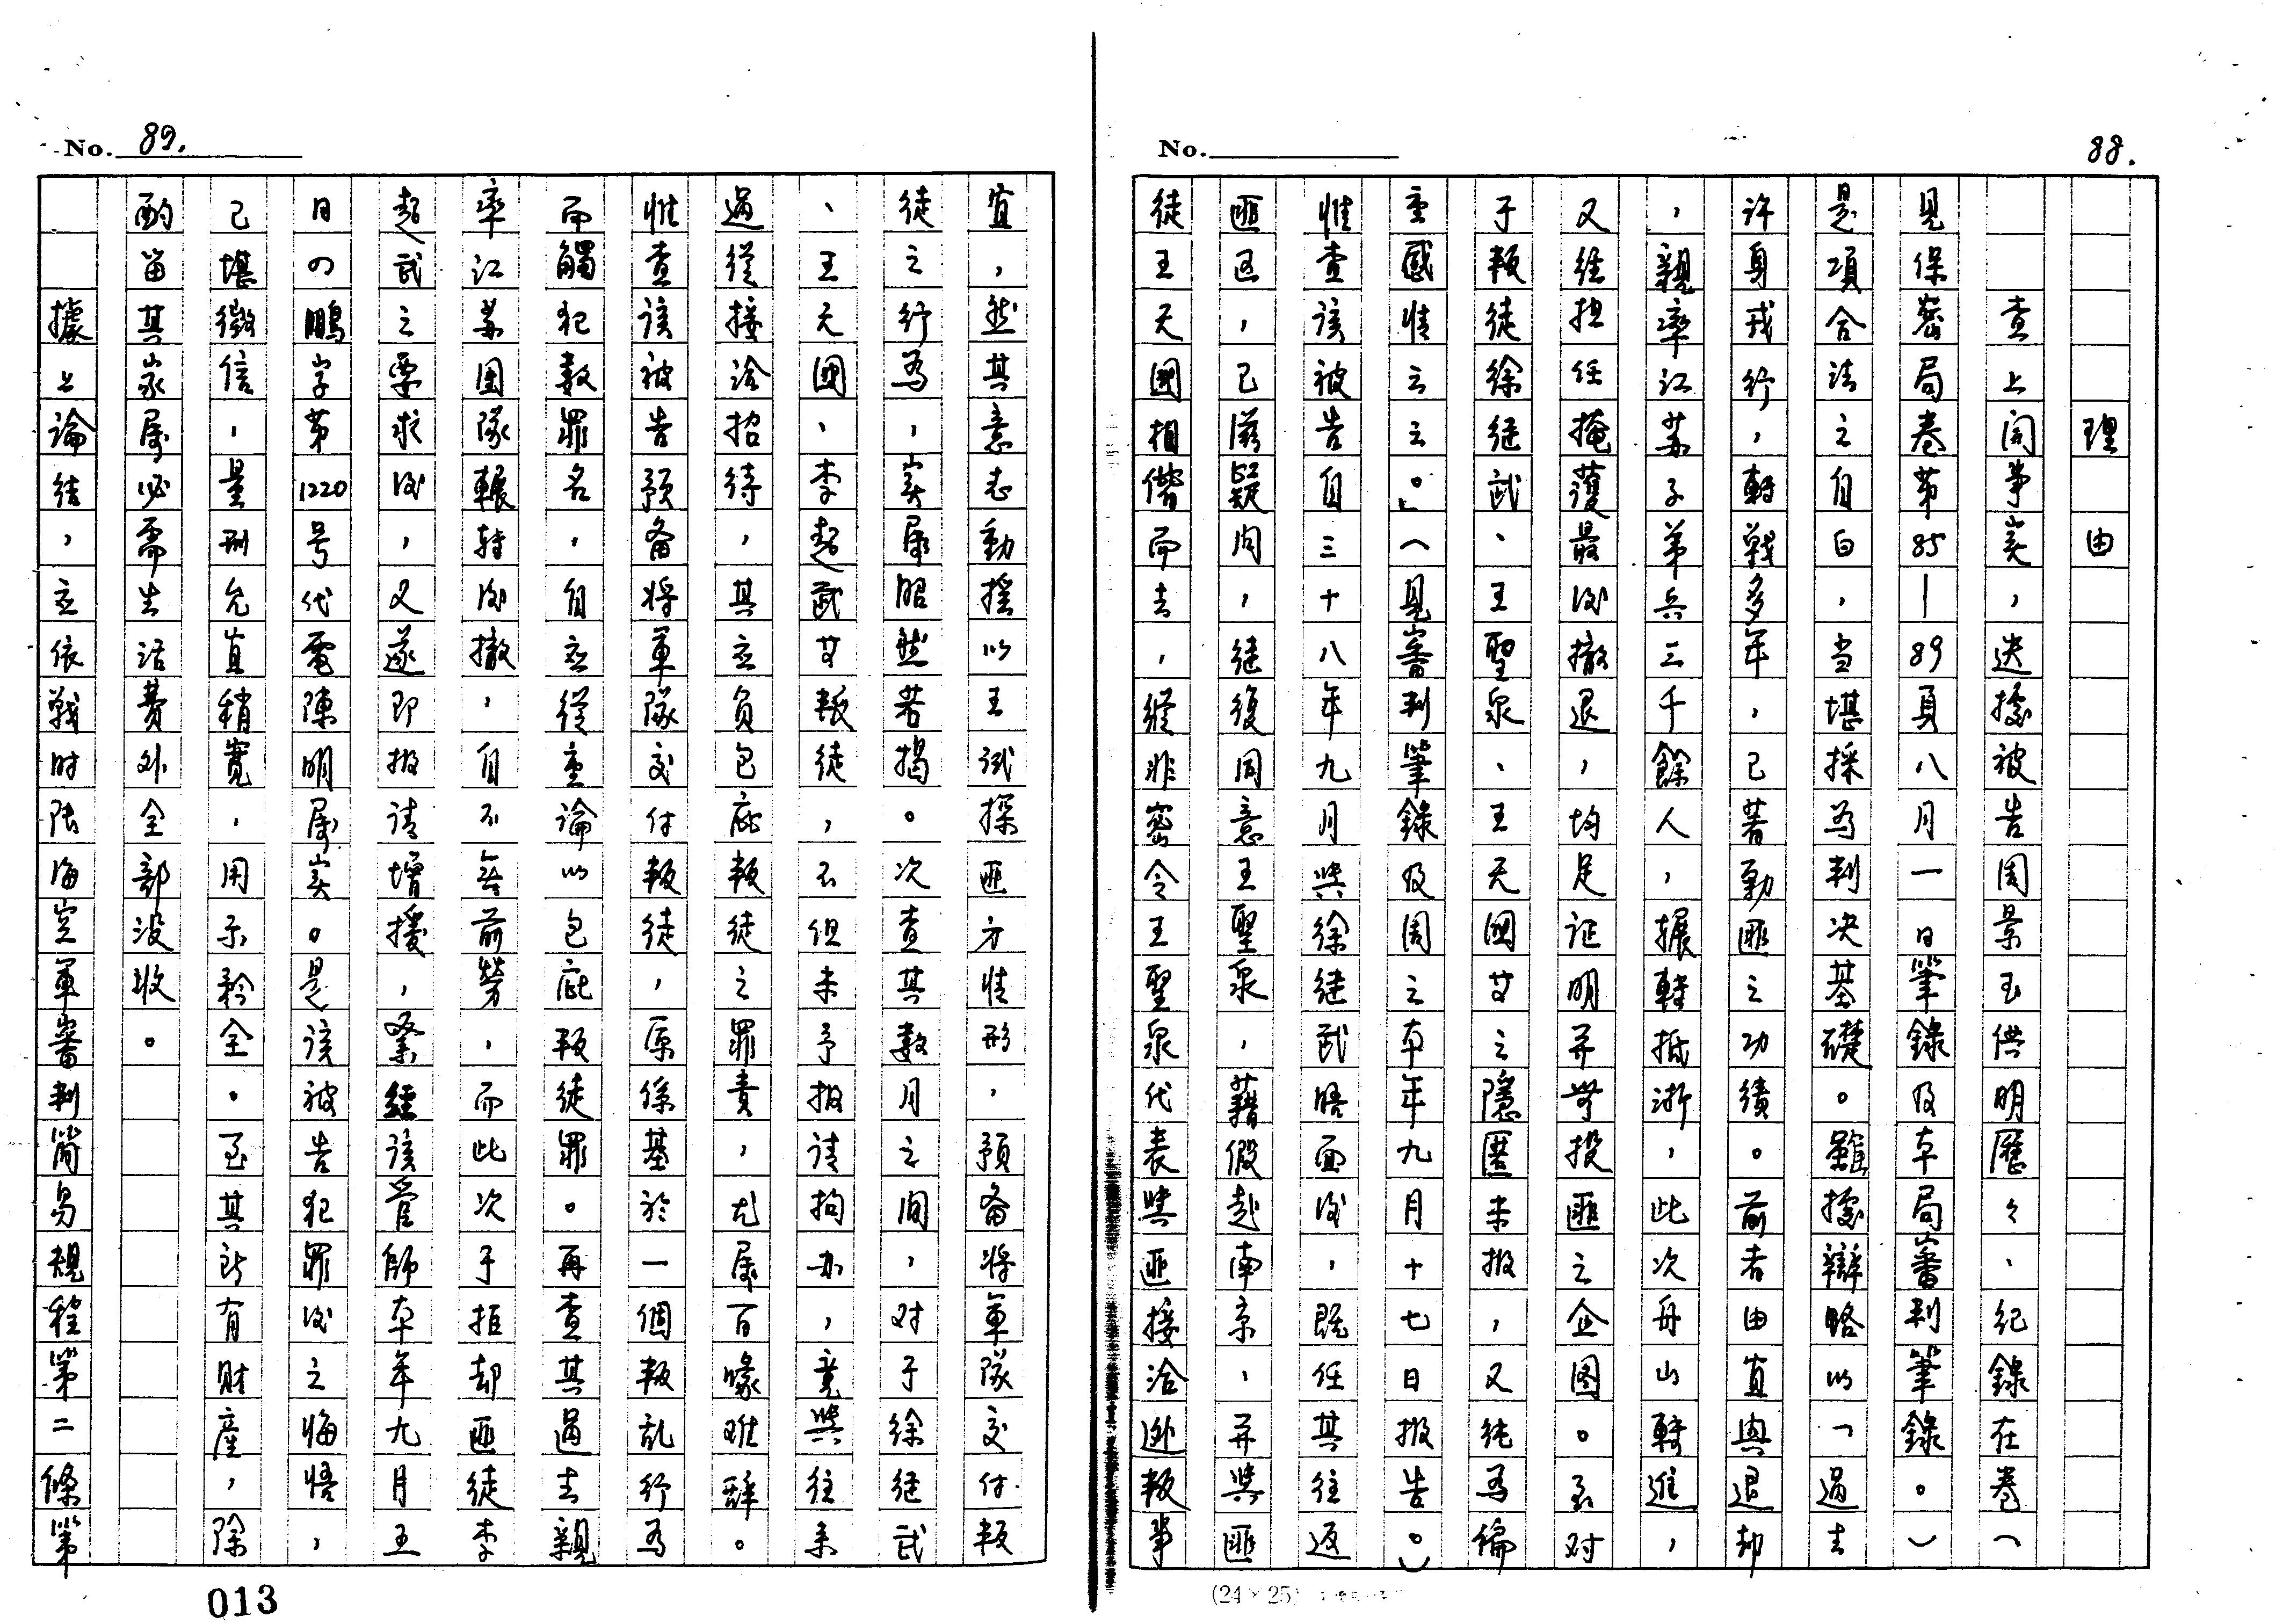 No.
88.
理由
查上開事實，迭據被告周景玉供明歷々、紀錄在卷（
見保密局卷第85—89頁八月一日筆錄及本局審判筆錄。）
是項合法之自白，当堪採為判決基礎。雖據辯略以「過去
許身戎行，轉戰多年，已著勦匪之功績。前者由直奥退却
，親率江苏子弟兵三千餘人，輾轉抵浙，此次舟山轉進，
又経担任掩護最後撤退，均足证明并無投匪之企图。至对
于叛徒徐継武、王聖泉、王天國艾之隱匿未报，又純為偏
重感情云云。」（見審判筆錄及周之本年九月十七日报告。）
惟查該被告自三十八年九月與徐継武晤面後，既任其往返
匪区，已滋疑问，継復同意王聖泉，藉假赴南京，并與匪
徒王天國相偕而去，縱非密令王聖泉代表與匪接洽叛事
(24×25)
No. 89.
宜，然其意志動摇以王試探匪方情形，預备将軍隊交付叛
徒之行為，实属昭然若揭。次查其數月之间，对于徐継武
、王天國、李超武艾叛徒，不但未予报请拘办，竟與往来
過從接洽招待，其应负包庇叛徒之罪責，尤属百喙难辞。
惟查該被告預备将軍隊交付叛徒，原係基於一個叛乱行為
而觸犯數罪名，自应從重論以包庇叛徒罪。再查其過去親
率江苏团隊輾轉後撤，自不無前勞，而此次于拒却匪徒李
超武之要求後，又遂即报请增援，案経該管師本年九月五
日の鵬字第1220号代電陳明属实。是該被告犯罪後之悔悟，
已堪徵信，量刑允宜稍寬，用示矜全。至其所有財産，除
酌留其家属必需生活費外全部没收。
據上論结，应依戰时陸海空軍審判简易規程第二條第
013